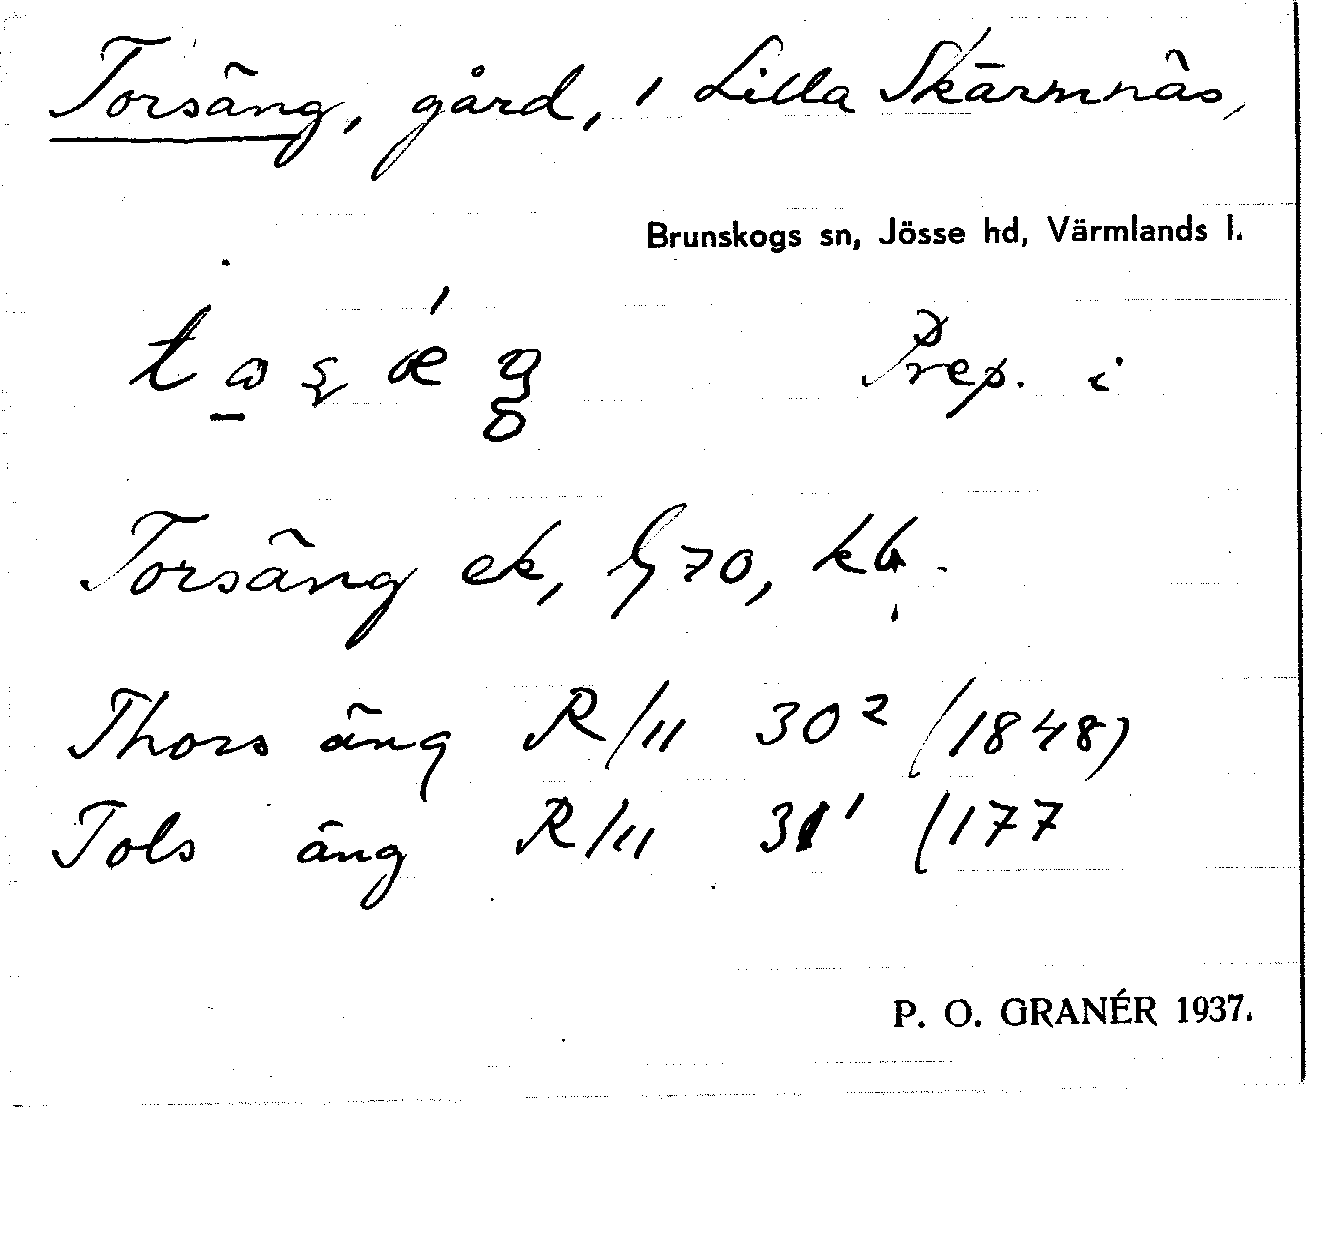 Torsäng, gård, i Lilla Skärmnäs,
Brunskogs sn, Jösse hd, Värmlands l.
Prep. i
Torsäng ek, 70, kb.
Thors äng R/II 30² (1848)
Tols äng R/II 31¹ (177
P. O. GRANÉR 1937.